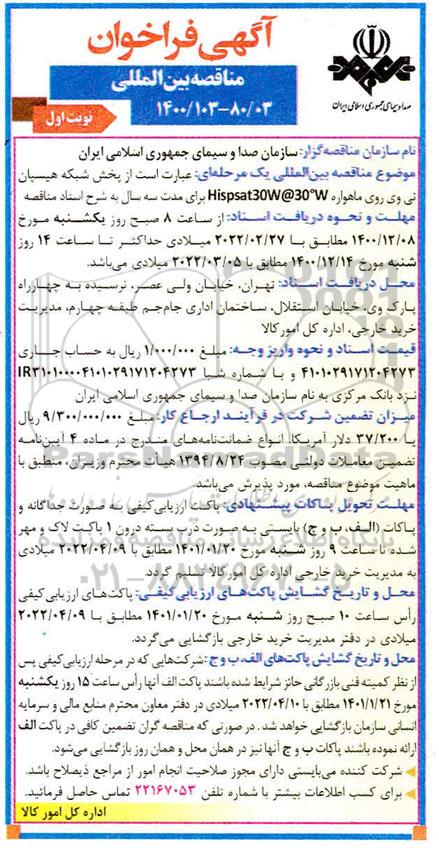 آگهی فراخوان
مناقصه بین‌المللی
۱۴۰۰/۱۰۳-۸۰/۰۳
نوبت اول
صدا و سیمای جمهوری اسلامی ایران
نام سازمان مناقصه‌گزار: سازمان صدا و سیمای جمهوری اسلامی ایران
موضوع مناقصه بین‌المللی یک مرحله‌ای: عبارت است از پخش شبکه هیسپان
تی وی روی ماهواره Hispsat30W@30°W برای مدت سه سال به شرح اسناد مناقصه
مهلت و نحوه دریافت اسناد: از ساعت ۸ صبح روز یکشنبه مورخ
۱۴۰۰/۱۲/۰۸ مطابق با ۲۰۲۲/۰۲/۲۷ میلادی حداکثر تا ساعت ۱۴ روز
شنبه مورخ ۱۴۰۰/۱۲/۱۴ مطابق با ۲۰۲۲/۰۳/۰۵ میلادی می‌باشد.
محل دریافت اسناد: تهران، خیابان ولی عصر، نرسیده به چهارراه
پارک وی، خیابان استقلال، ساختمان اداری جام‌جم طبقه چهارم، مدیریت
خرید خارجی، اداره کل امور کالا
قیمت اسناد و نحوه واریز وجه: مبلغ ۱/۰۰۰/۰۰۰ ریال به حساب جاری
۴۱۰۱۰۲۹۱۷۱۲۰۴۲۷۳ و یا شماره شبا IR۳۱۰۱۰۰۰۰۴۱۰۱۰۲۹۱۷۱۲۰۴۲۷۳
نزد بانک مرکزی به نام سازمان صدا و سیمای جمهوری اسلامی ایران
میزان تضمین شرکت در فرآیند ارجاع کار: مبلغ ۹/۳۰۰/۰۰۰/۰۰۰ ریال
یا ۳۷/۲۰۰ دلار آمریکا. انواع ضمانت‌نامه‌های مندرج در ماده ۴ آیین‌نامه
تضمین معاملات دولتی مصوب ۱۳۹۴/۸/۲۴ هیات محترم وزیران، منطبق با
ماهیت موضوع مناقصه، مورد پذیرش می‌باشد.
مهلت تحویل پاکات پیشنهادی: پاکت ارزیابی کیفی به صورت جداگانه و
پاکات (الف، ب و ج) بایستی به صورت درب بسته درون ۱ پاکت لاک و مهر
شده تا ساعت ۹ روز شنبه مورخ ۱۴۰۱/۰۱/۲۰ مطابق با ۲۰۲۲/۰۴/۰۹ میلادی
به مدیریت خرید خارجی اداره کل امور کالا تسلیم گردد.
محل و تاریخ گشایش پاکت‌های ارزیابی کیفی: پاکت‌های ارزیابی کیفی
رأس ساعت ۱۰ صبح روز شنبه مورخ ۱۴۰۱/۰۱/۲۰ مطابق با ۲۰۲۲/۰۴/۰۹
میلادی در دفتر مدیریت خرید خارجی بازگشایی می‌گردد.
محل و تاریخ گشایش پاکت‌های الف، ب و ج: شرکت‌هایی که در مرحله ارزیابی کیفی پس
از نظر کمیته فنی بازرگانی حائز شرایط شده باشند پاکت الف آنها رأس ساعت ۱۵ روز یکشنبه
مورخ ۱۴۰۱/۱/۲۱ مطابق با ۲۰۲۲/۰۴/۱۰ میلادی در دفتر معاون محترم منابع مالی و سرمایه
انسانی سازمان بازگشایی خواهد شد. در صورتی که مناقصه گران تضمین کافی در پاکت الف
ارائه نموده باشند پاکات ب و ج آنها نیز در همان محل و همان روز بازگشایی می‌شود.
شرکت کننده می‌بایستی دارای مجوز صلاحیت انجام امور از مراجع ذیصلاح باشد.
برای کسب اطلاعات بیشتر با شماره تلفن ۲۲۱۶۷۰۵۳ تماس حاصل فرمائید.
اداره کل امور کالا
ParsNamadData
۰۲۱-۸۸۳۴۹۶۷۰-۵